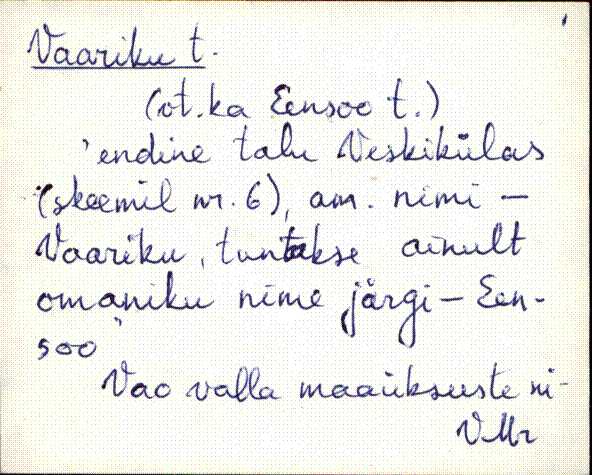 Vaariku t.
(vt. ka Eensoo t.)
"endine talu Veskikülas
(skeemil nr. 6), am. nimi –
Vaariku, tuntakse ainult
omaniku nime järgi – Een-
soo"
Vao valla maaüksuste ni-
VMr